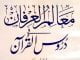 معالم العرفان
دروس القرآن